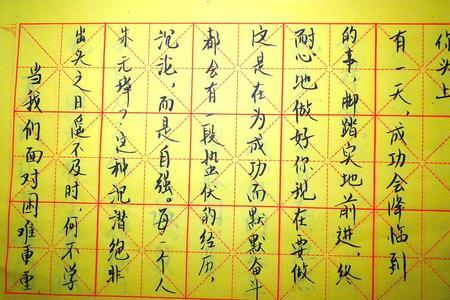 当我们面对困难重重
出头之日遥不及时，何不学
朱元璋？这种沉潜绝非
沉沦，而是自强。每一个人
都会有一段蛰伏的经历，
这是在为成功而默默奋斗
耐心地做好你现在要做
的事，脚踏实地前进，终
有一天，成功会降临到
你头上